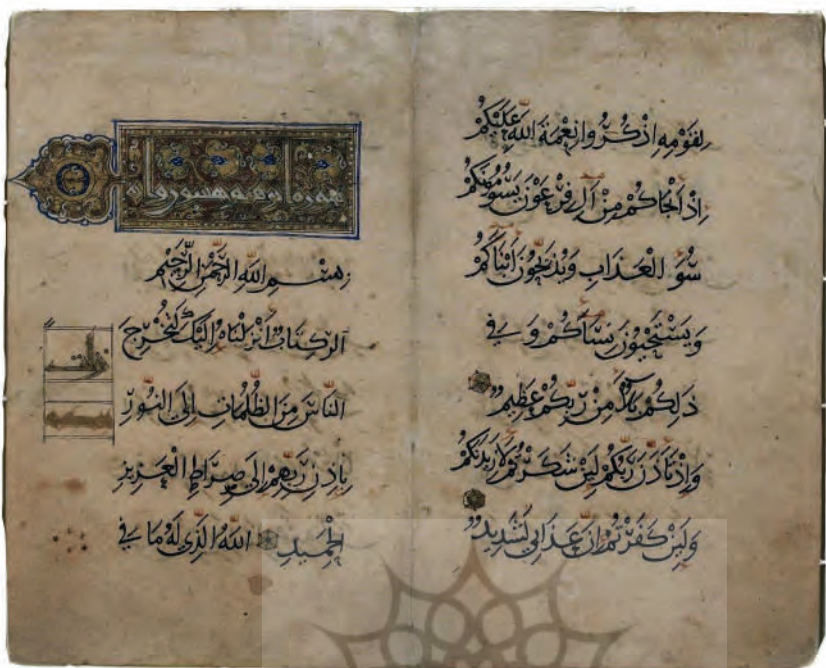 لِقَوْمِهِ اذْكُرُوا نِعْمَةَ اللَّهِ عَلَيْكُمْ
اِذْ اَنْجَاكُمْ مِنْ آلِ فِرْعَوْنَ يَسُومُونَكُمْ
سُوَٓ الْعَذَابِ وَيُذَبِّحُونَ اَبْنَاكُمْ
وَيَسْتَحْيُونَ نِسَاكُمْ وَفِي
ذَلِكُمْ بَلَاٌ مِنْ رَبِّكُمْ عَظِيمٌ
وَاِذْ تَاَذَّنَ رَبُّكُمْ لَئِنْ شَكَرْتُمْ لَاَزِيدَنَّكُمْ
وَلَئِنْ كَفَرْتُمْ اِنَّ عَذَابِي لَشَدِيدٌ
بِسْمِ اللَّهِ الرَّحْمَنِ الرَّحِيمِ
الر كِتَابٌ اَنْزَلْنَاهُ اِلَيْكَ لِتُخْرِجَ
النَّاسَ مِنَ الظُّلُمَاتِ اِلَى النُّورِ
بِاِذْنِ رَبِّهِمْ اِلَى صِرَاطِ الْعَزِيزِ
الْحَمِيدِ اللَّهِ الَّذِي لَهُ مَا فِي
نزلت
بمكه